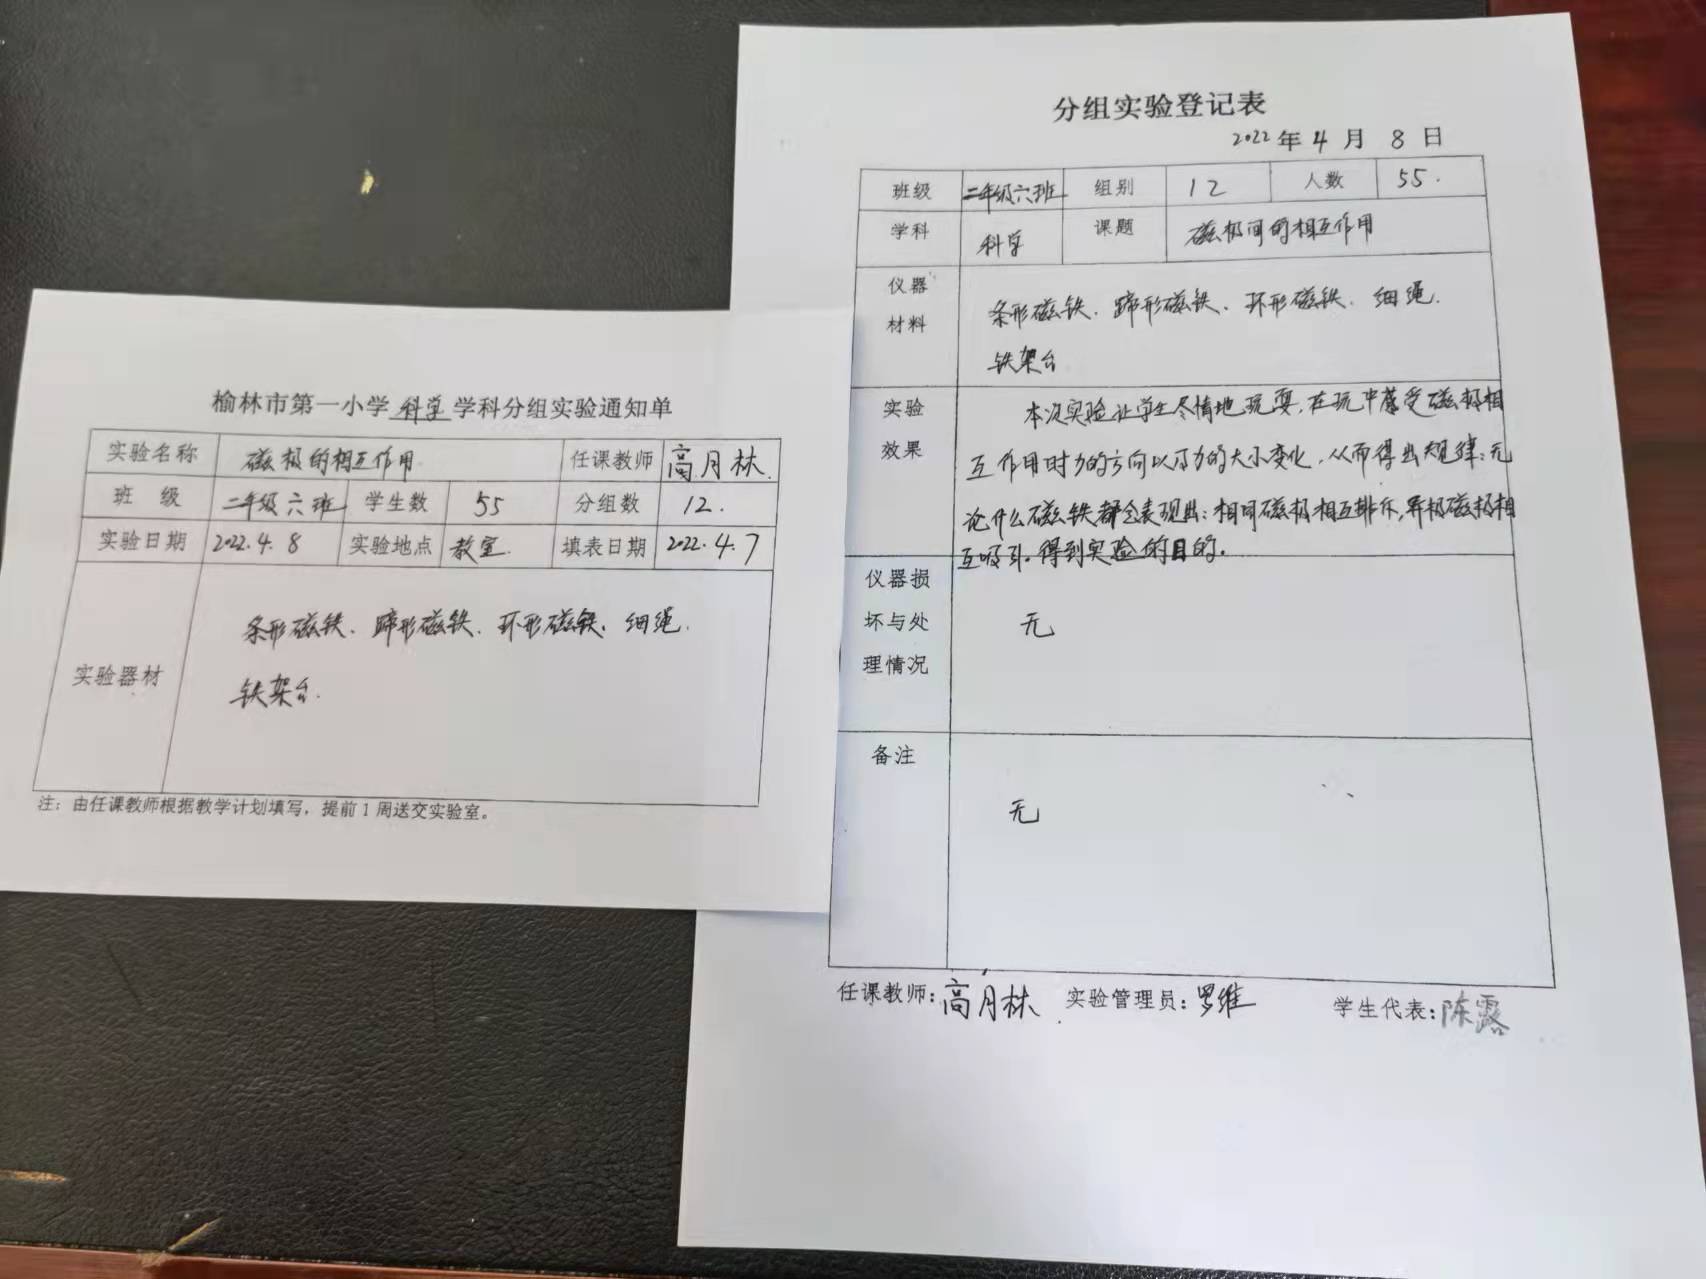 榆林市第一小学 科学 学科分组实验通知单
实验名称 磁极的相互作用 任课教师 高月林
班 级 二年级六班 学生数 55 分组数 12.
实验日期 2022.4.8 实验地点 教室. 填表日期 2022.4.7
实验器材
条形磁铁、蹄形磁铁、环形磁铁、细绳.
铁架台.
注：由任课教师根据教学计划填写，提前1周送交实验室。
分组实验登记表
2022年4月8日
班级 二年级六班 组别 12 人数 55.
学科 科学 课题 磁极间的相互作用
仪器
材料
条形磁铁、蹄形磁铁、环形磁铁、细绳.
铁架台
实验
效果
本次实验让学生尽情地玩耍，在玩中感受磁极相
互作用时力的方向以及力的大小变化，从而得出规律：无
论什么磁铁都会表现出：相同磁极相互排斥，异极磁极相
互吸引。得到实验的目的。
仪器损
坏与处
理情况
无
备注
无
任课教师：高月林 实验管理员：罗维 学生代表：陈露